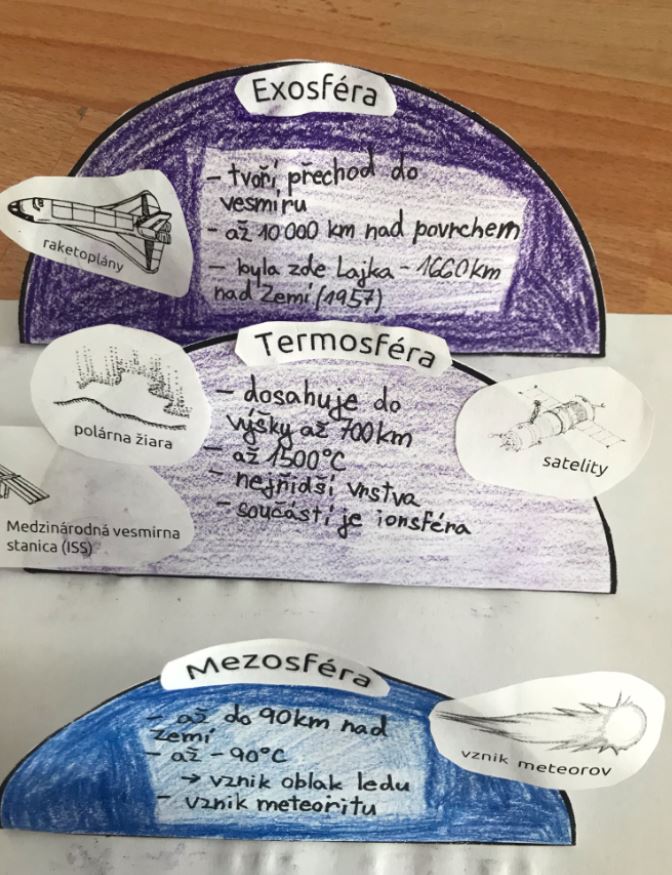 Exosféra
- tvoří přechod do
vesmíru
- až 10 000 km nad povrchem
- byla zde Lajka - 1660 km
nad Zemí (1957)
raketoplány
Termosféra
- dosahuje do
výšky až 700km
- až 1500°C
- nejřidší vrstva
- součástí je ionsféra
polárna žiara
satelity
Medzinárodná vesmírna
stanica (ISS)
Mezosféra
- až do 90km nad
zemí
- až - 90°C
→ vznik oblak ledu
- vznik meteoritu
vznik meteorov